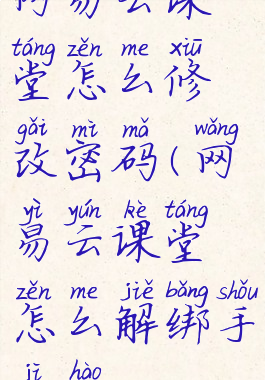 网易云课
táng zěn me xiū
堂怎么修
gǎi mì mǎ wǎng
改密码(网
yì yún kè táng
易云课堂
zěn me jiě bǎng shǒu
怎么解绑手
jī hào